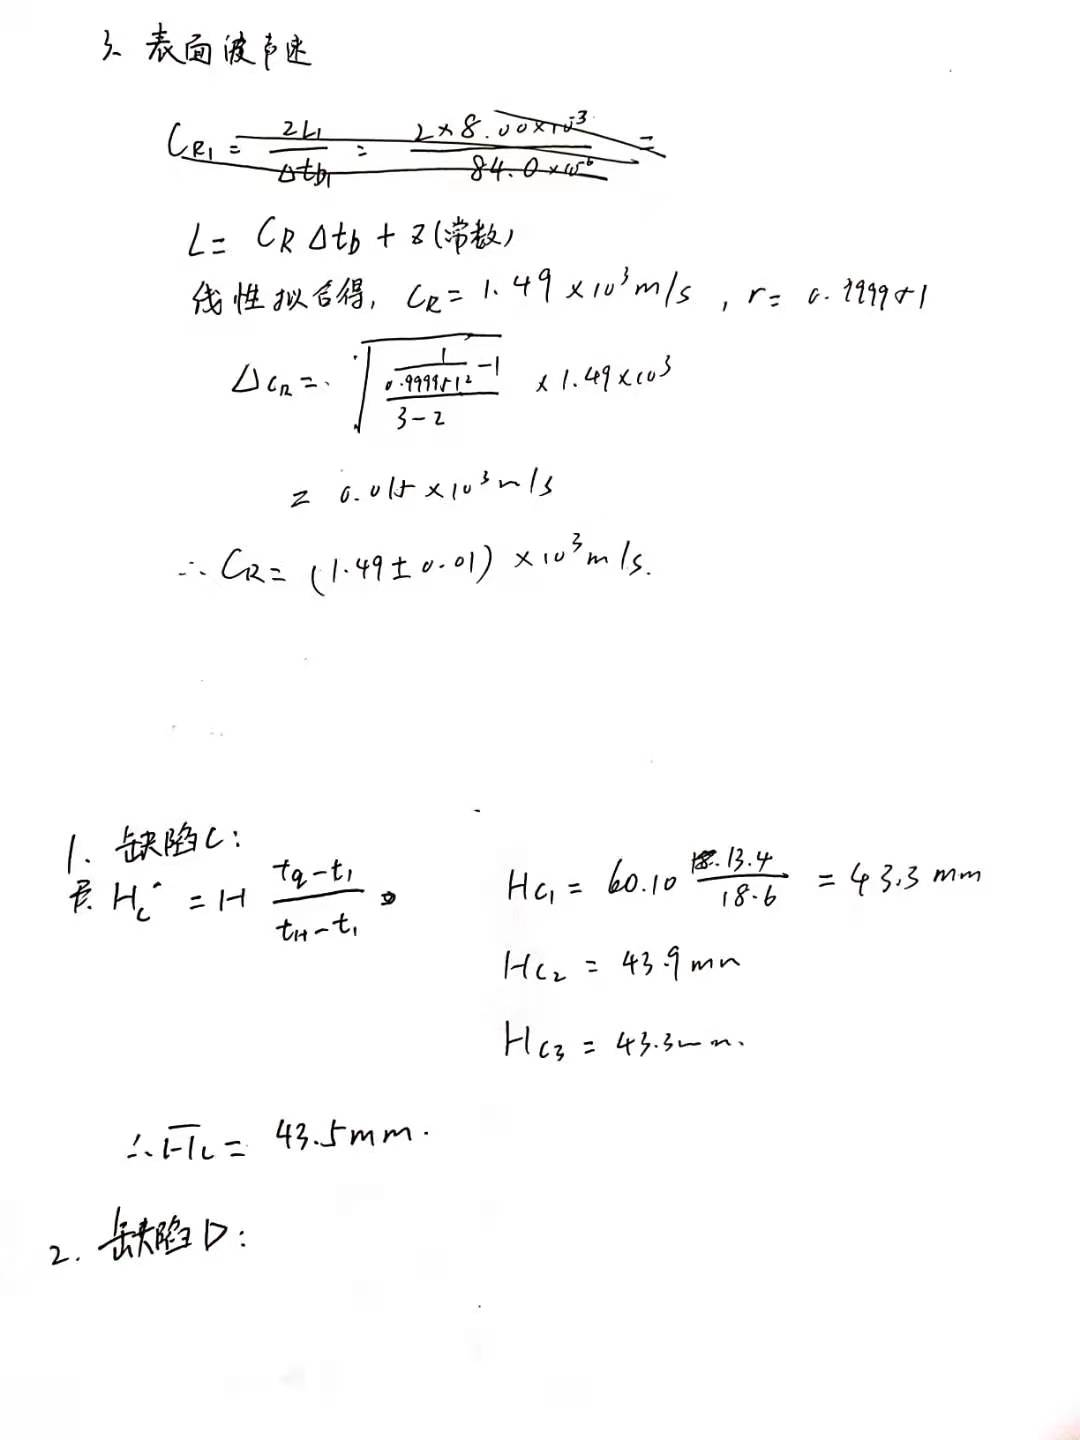 3、表面波声速
C_{R1} = \frac{2L_1}{Δt_{b1}} = \frac{2×8.00×10^{-3}}{84.0×10^{-6}} =
L = C_R Δt_b + z(常数)
线性拟合得, C_R = 1.49×10^3 m/s , r = 0.999951
Δ_{C_R} = \sqrt{\frac{\frac{1}{0.999951^2}-1}{3-2}} × 1.49×10^3
= 0.015×10^3 m/s
∴ C_R = (1.49±0.01)×10^3 m/s.
1. 缺陷C:
H_C = H \frac{t_q-t_1}{t_H-t_1}
H_{C1} = 60.10 \frac{13.4}{18.6} = 43.3 mm
H_{C2} = 43.9 mm
H_{C3} = 43.3 mm.
∴ \overline{H_C} = 43.5 mm.
2. 缺陷D: